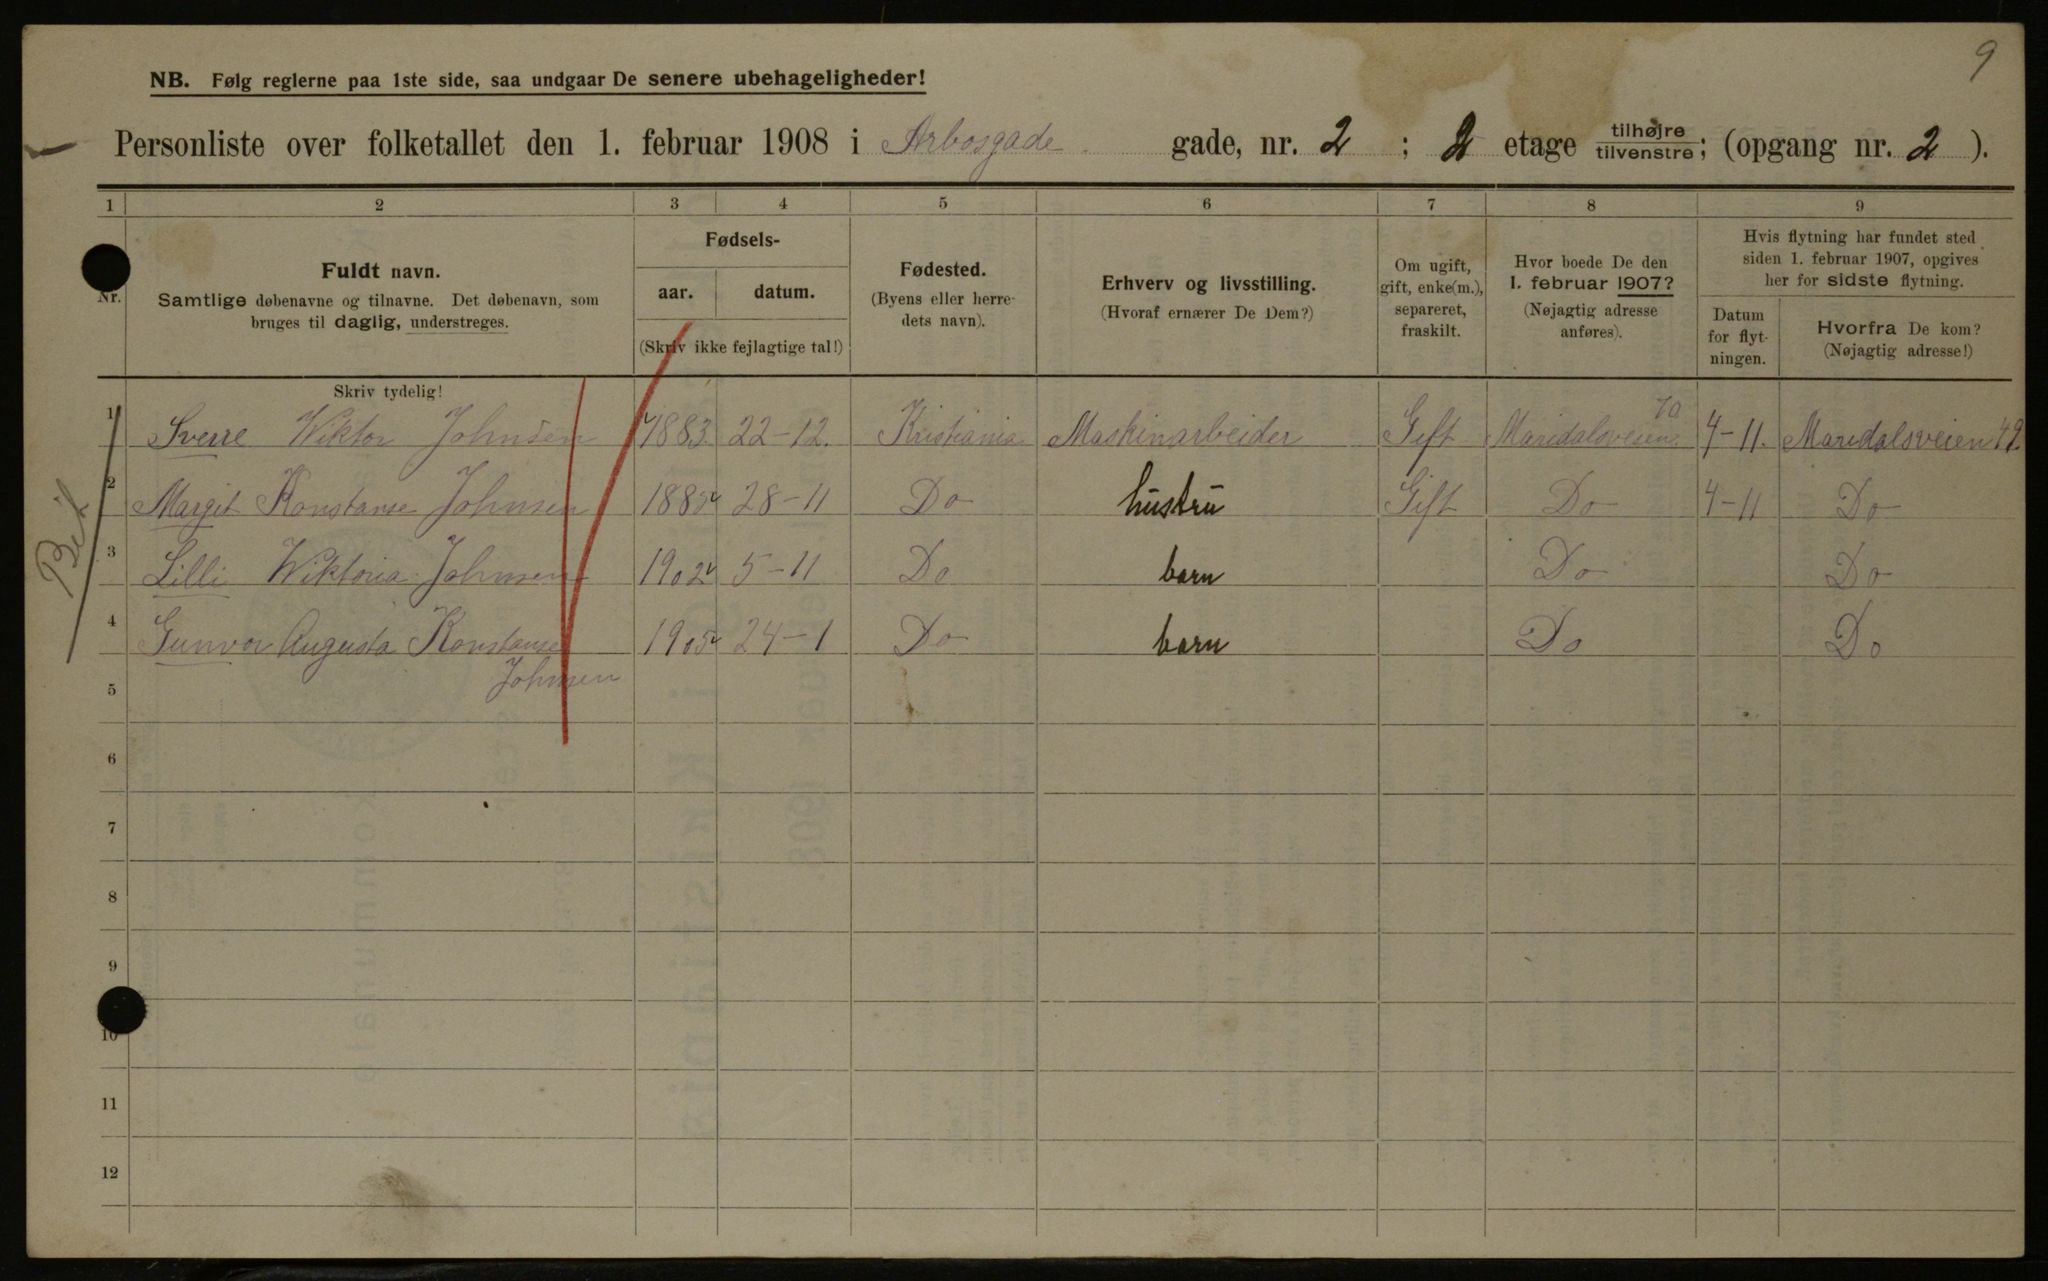 9
NB. Følg reglerne paa 1ste side, saa undgaar De senere ubehageligheder!
Personliste over folketallet den 1. februar 1908 i Arbosgade gade, nr. 2 ; 2 etage tilhøjre tilvenstre; (opgang nr. 2 ).
1 2 3 4 5 6 7 8 9
Nr.
Fuldt navn.
Samtlige døbenavne og tilnavne. Det døbenavn, som
bruges til daglig, understreges.
Fødsels-
aar. datum.
(Skriv ikke fejlagtige tal!)
Fødested.
(Byens eller herre-
dets navn).
Erhverv og livsstilling.
(Hvoraf ernærer De Dem?)
Om ugift,
gift, enke(m.),
separeret,
fraskilt.
Hvor boede De den
1. februar 1907?
(Nøjagtig adresse
anføres).
Hvis flytning har fundet sted
siden 1. februar 1907, opgives
her for sidste flytning.
Datum
for flyt-
ningen.
Hvorfra De kom?
(Nøjagtig adresse!)
Skriv tydelig!
1 Sverre Wiktor Johnsen 1883. 22-12. Kristiania Maskinarbeider Gift Maridalsveien 70 4-11. Maridalsveien 49
2 Margit Konstanse Johnsen 28-11 Do hustru Gift Do 4-11 Do
3 Lilli Wiktoria Johnsen 1902 5-11 Do barn Do Do
4 Gunvor Augusta Konstanse 1905 24-1 Do barn Do Do
Johnsen
5
6
7
8
9
10
11
12